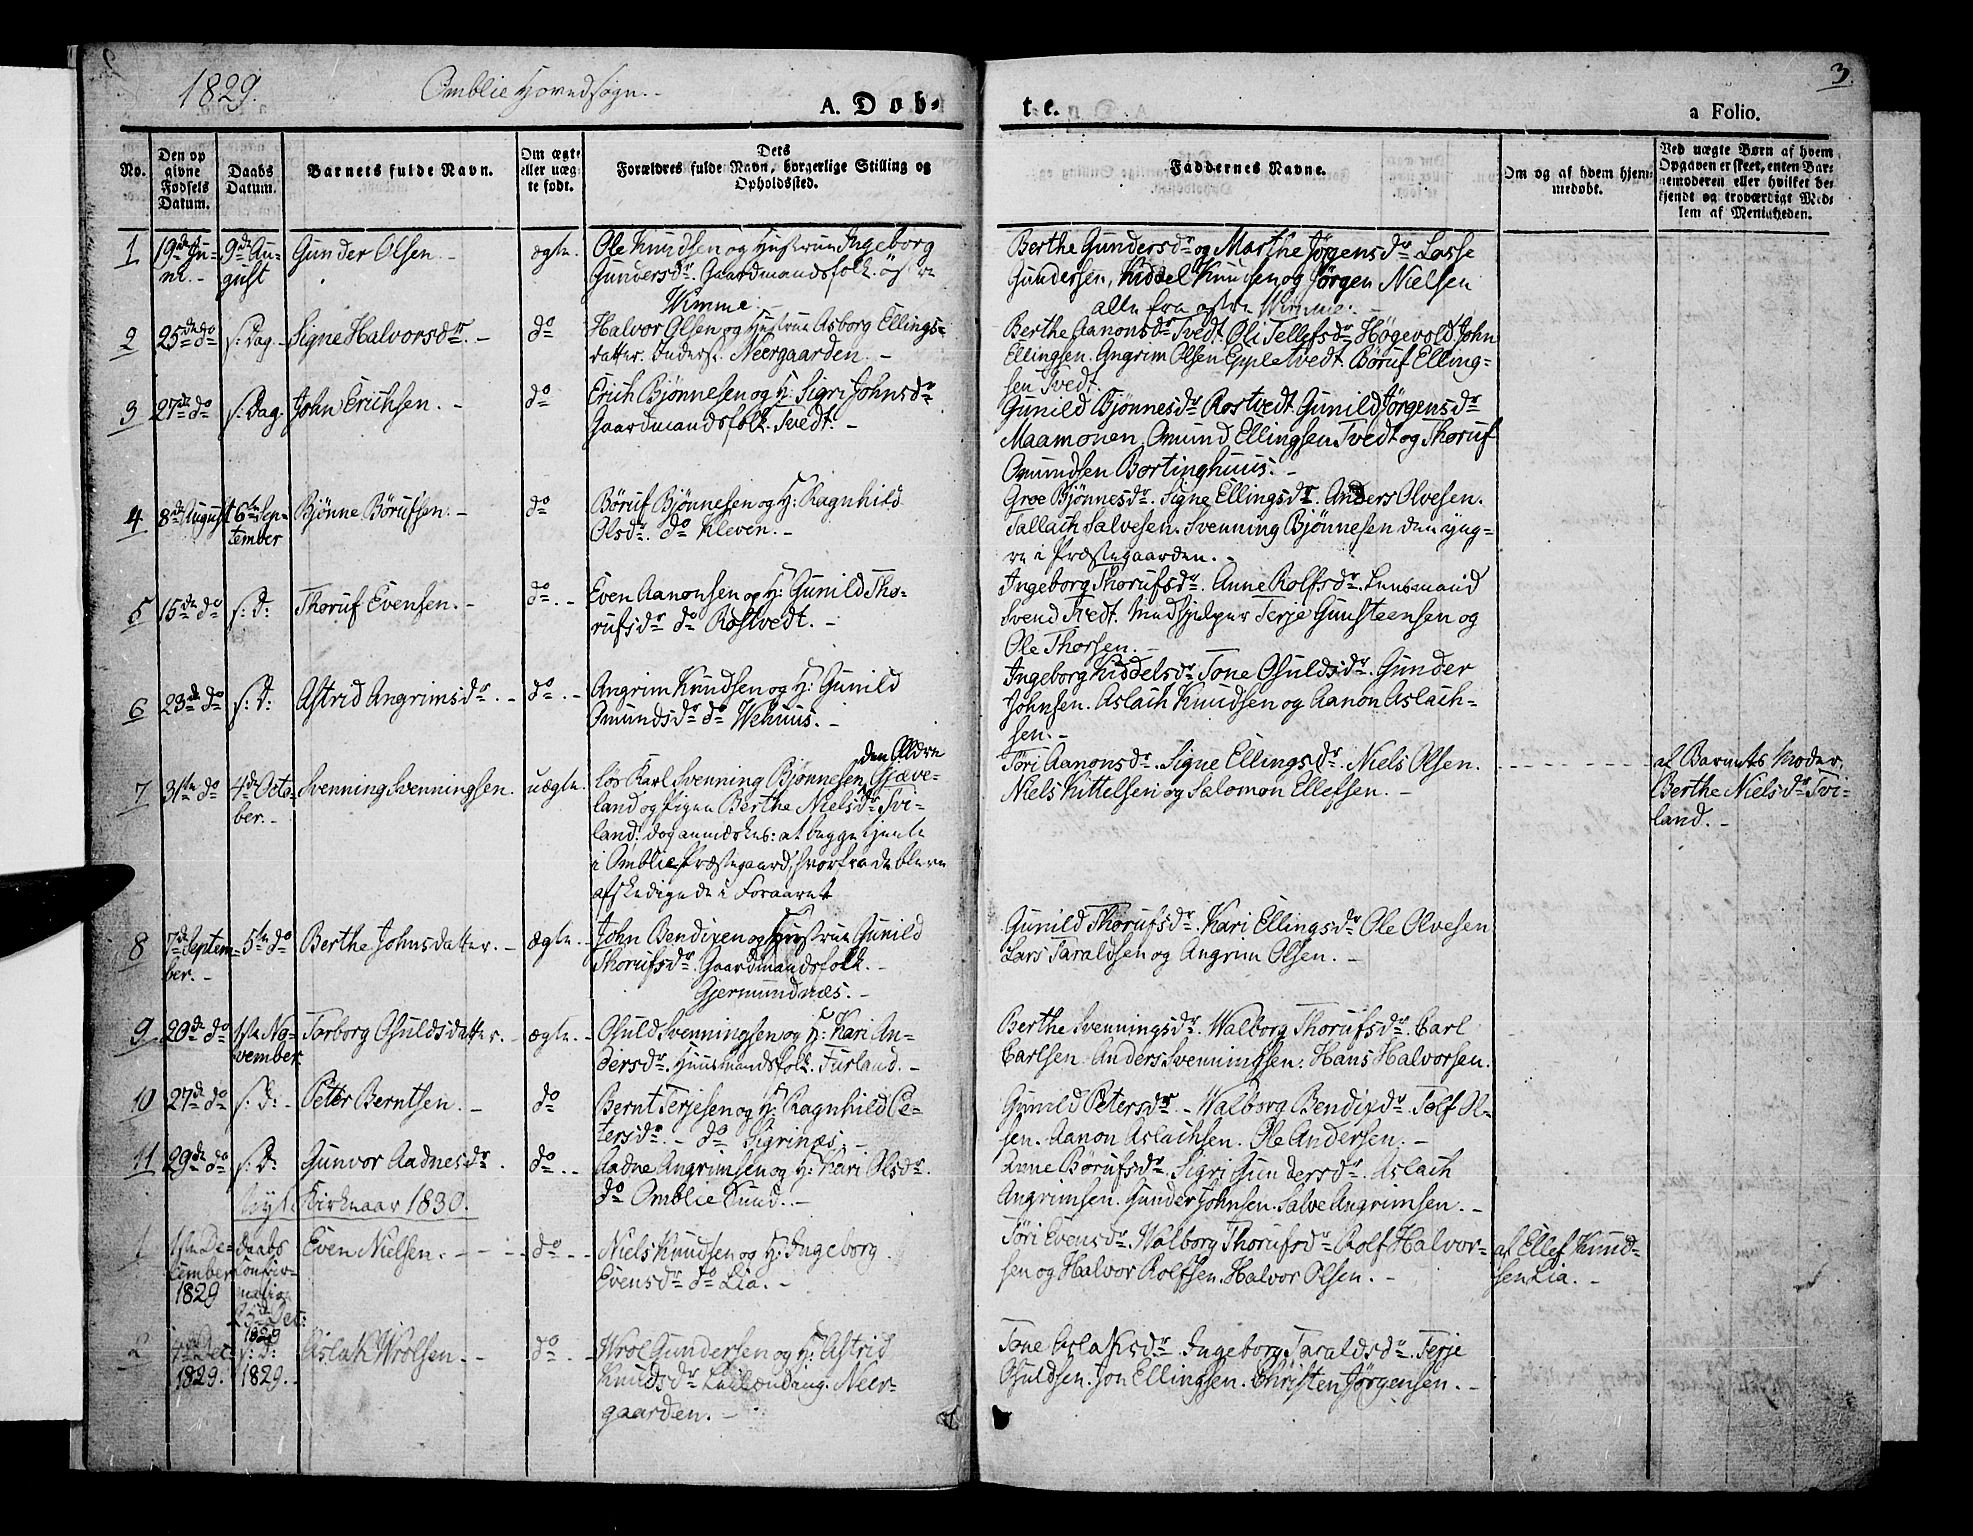 1829.
Omblie Hovedsogn.
A. Døb-
te.
a Folio.
3
No.
Den op
givne
Fødsels
Datum.
Daabs
Datum.
Barnets fulde Navn.
Om ægte
eller uæg
te født.
Dets
Forældres fulde Navn, borgerlige Stilling og
Opholdssted.
Faddernes Navne.
Om og af hvem hjem-
medøbt.
Ved uægte Børn af hvem
Opgaven er skeet, enten Bar-
nemoderen eller hvilket be-
kjendt og troværdigt Med-
lem af Menigheden.
1
19de Ju-
ni.
9de Au-
gust
Gunder Olsen.
ægte.
Ole Knudsen og Hustrue Ingeborg
Gundersdr. Gaardmandsfolk
Wimme.
Berthe Gundersdr og Marthe Jørgensdr Lasse
Gundersen, Kiddel Knudsen og Jørgen Nielsen
alle fra østre Wimme.
2
25de do
s: Dag.
Signe Halvorsdtr.
do
Halvor Olsen og Hustrue Asborg Ellings-
datter. Inderst. Neergaarden.
Berthe Aanonsdr Tvedt. Oli Tellefsdr Høgevold. John
Ellingsen. Angrim Olsen Eppletvedt. Børuf Elling-
sen Tvedt.
3
27de do
s: Dag.
John Erichsen.
do
Erich Bjønnesen og H: Sigri Johnsdr
Gaardmandsfolk. Tvedt.
Gunild Bjønnesdr Rostvedt. Gunild Jørgensdr
Maamonen. Omund Ellingsen Tvedt og Thoruf
Omundsen Bortinghuus.
4
8de August
6te Sep-
tember
Bjønne Børufsen.
do
Børuf Bjønnesen og H: Ragnhild
Olsdr. do Kleven.
Groe Bjønnesdr. Signe Ellingsdr. Anders Olvesen.
Tallach Salvesen. Svenning Bjønnesen den yng-
re i Præstegaarden.
5
15de do
s: D:
Thoruf Evensen.
do.
Even Aanonsen og H: Gunild Tho-
rufsdr do Rostvedt.
Ingeborg Thorufsdr. Anne Rolfsdr. Lensmand
Svend Tvedt. Medhjelper Terje Gunsteensen og
Ole Thorsen.
6
23de do
s: D:
Astrid Angrimsdr.
do.
Angrim Knudsen og H: Gunild
Omundsdr do Wehuus.
Ingeborg Kiddelsdr. Tone Osuldsdr. Gunder
Johnsen. Aslach Knudsen og Aanon Aslach-
sen.
7
31te do
4de Octo-
ber.
Svenning Svenningsen.
uægte.
den Ældre
løs Karl Svenning Bjønnesen, Gjæve-
land og Pigen Berthe Nielsdr Tvi-
land; dog anmærkes: at begge tjente
i Omblie Præstegaard, hvorfra de bleve
afskedigede i Foraaret
Tøri Aanonsdr. Signe Ellingsdr. Niels Olsen.
Niels Kittelsen og Salomon Ellefsen.
af Barnets Moder,
Berthe Nielsdr Tvi-
land.
8
7de Septem-
ber.
5te do
Berthe Johnsdatter.
ægte.
John Bendixen og Hustrue Gunild
Thorufsdr. Gaardmandsfolk.
Gjermundnæs.
Gunild Thorufsdr. Kari Ellingsdr Ole Olvesen
Lars Taraldsen og Angrim Olsen.
9
20de do
1ste No-
vember
Torborg Osuldsdatter.
ægte.
Osuld Svenningsen og H: Kari An-
dersdr. Huusmandsfolk. Furland.
Berthe Svenningsdr. Walborg Thorufsdr. Carl
Carlsen. Anders Svenningsen. Hans Halvorsen.
10
27de do
s: d:
Peter Berntsen.
do
Bernt Terjesen og H: Ragnhild Pe-
tersdr. do Sigrinæs.
Gunild Petersdr. Walborg Bendixdr. Tolf Ol-
sen. Aanon Aslachsen. Ole Andersen.
11
29de do
s: D:
Gunvor Aadnesdr.
do.
Aadne Angrimsen og H: Kari Olsdr.
do Omblie Sund.
Anne Børufsdr. Sigri Gundersdr. Aslach
Angrimsen. Gunder Johnsen. Salve Angrimsen.
Nyt Kirkeaar 1830.
1
1ste De-
cember
1829
Daabs
Confir-
mation
25de Dec:
1829
Even Nielsen.
do.
Niels Knudsen og H: Ingeborg
Evensdr do Lia.
Tøri Evensdr. Walborg Thorufsdr Rolf Halvor-
sen og Halvor Rolfsen. Halvor Olsen.
af Ellef Knud-
sen Lia.
2
4de Dec
1829.
s: d:
1829.
Aslak Wrolsen.
do.
Wrol Gundersen og H: Astrid
Knudsdr Neer-
gaarden.
Tone Aslaksdr. Ingeborg Taraldsdr. Terje
Osuldsen. Jon Ellingsen. Christen Jørgensen.